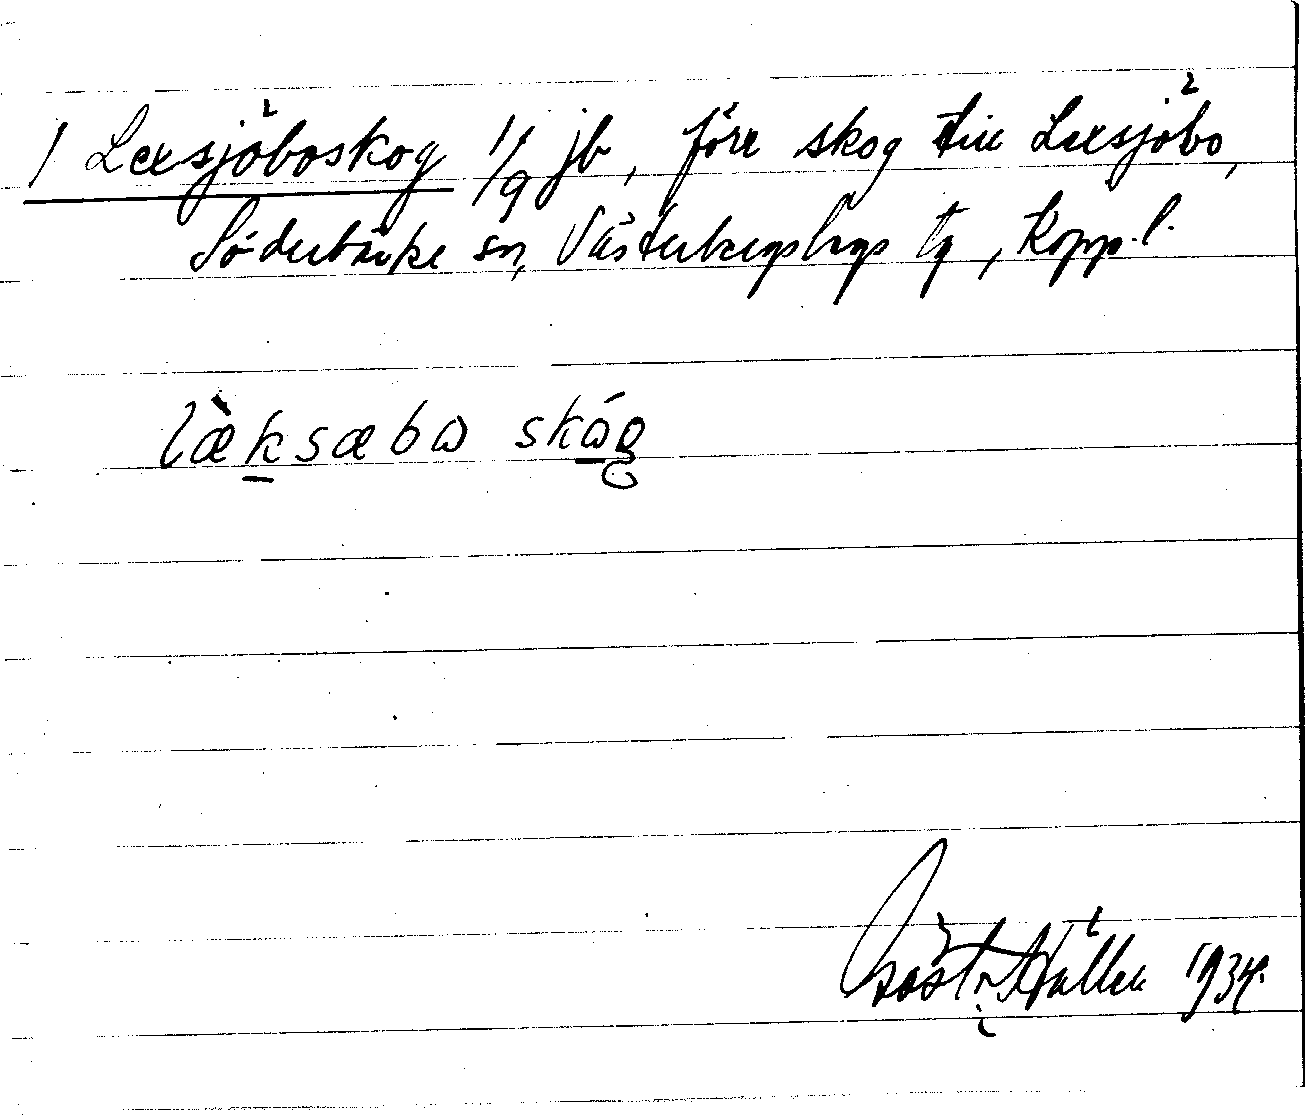 / Lexsjöboskog 1/9 jb, förr skog till Lexsjöbo,
Söderbärke sn, Västerbergslags tg, Kopp. l.
læksæbω skώg
Gösta Hallen 1934.